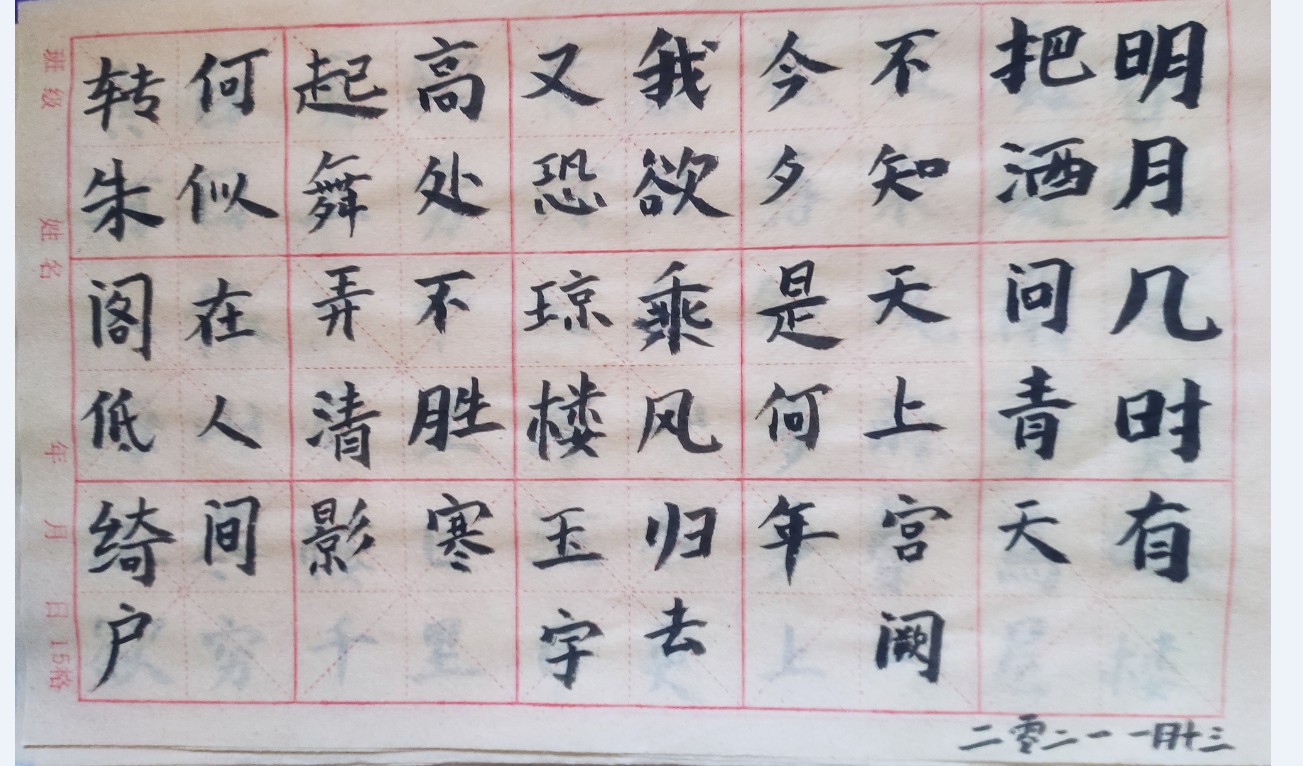 明月几时有
把酒问青天
不知天上宫阙
今夕是何年
我欲乘风归去
又恐琼楼玉宇
高处不胜寒
起舞弄清影
何似在人间
转朱阁低绮户
二零二一 一月十三
班级 姓名 年 月 日 15格